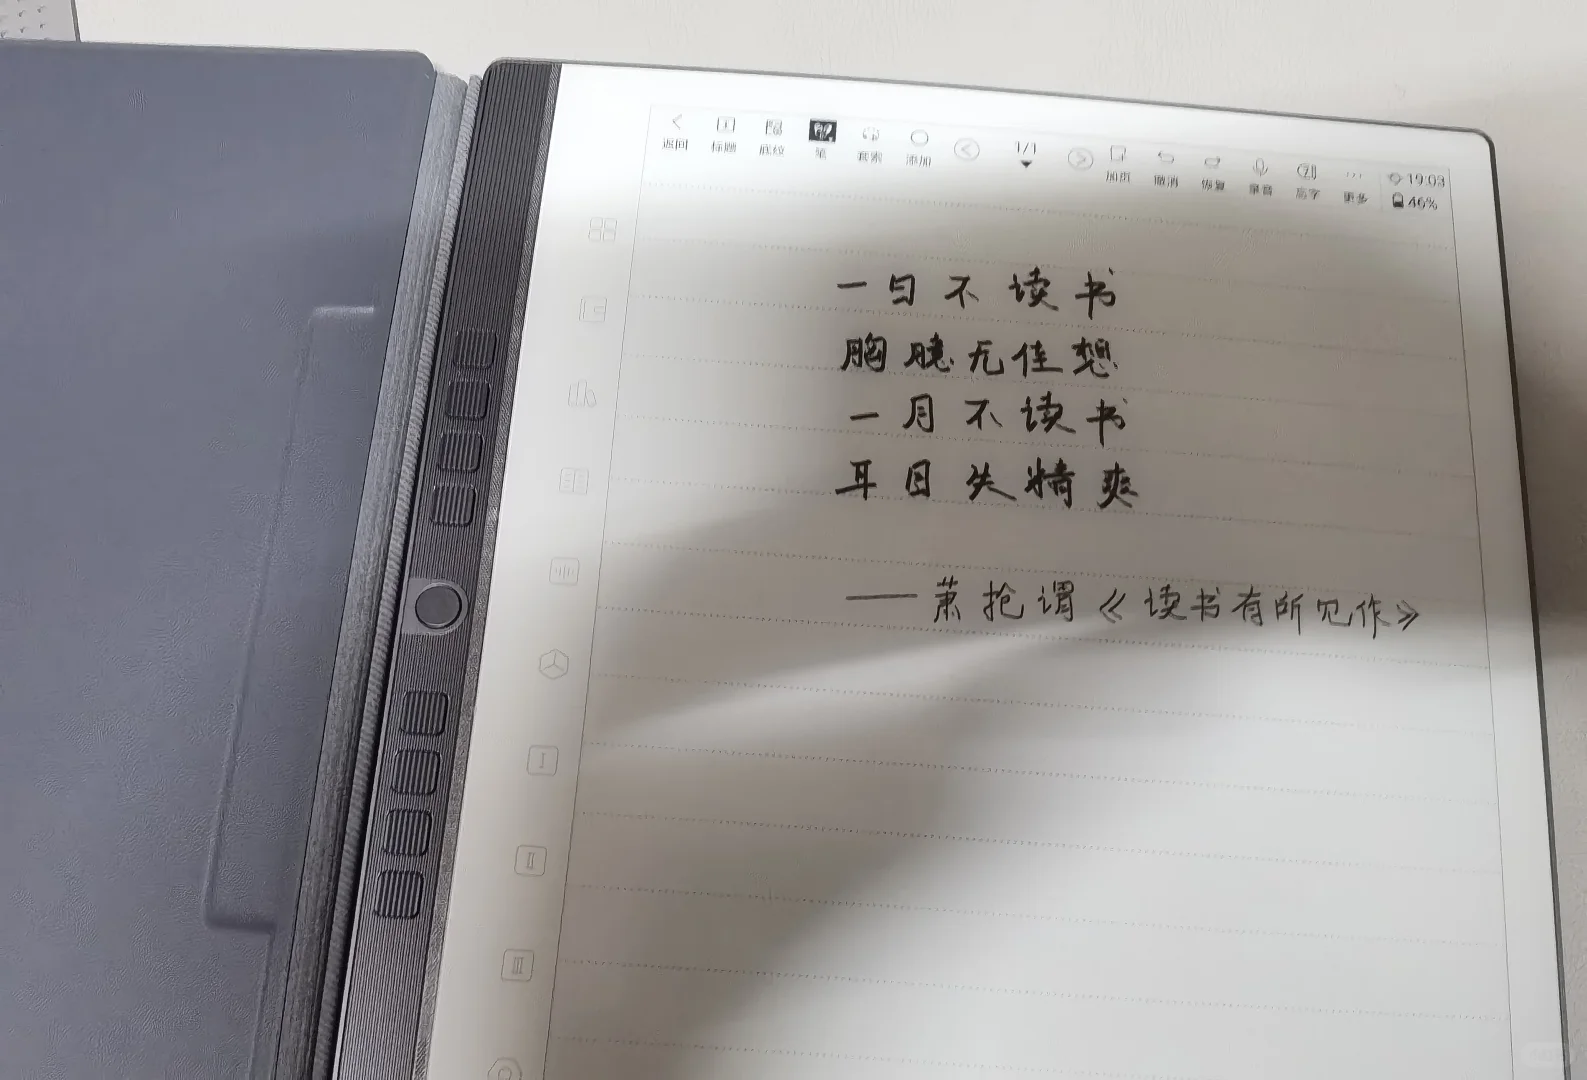 返回 标题 底纹 笔 套索 添加 1/1 加页 撤消 恢复 录音 忘字 更多 19:03
46%
一日不读书
胸臆无佳想
一月不读书
耳目失精爽
——萧抢谓《读书有所见作》
I
II
III